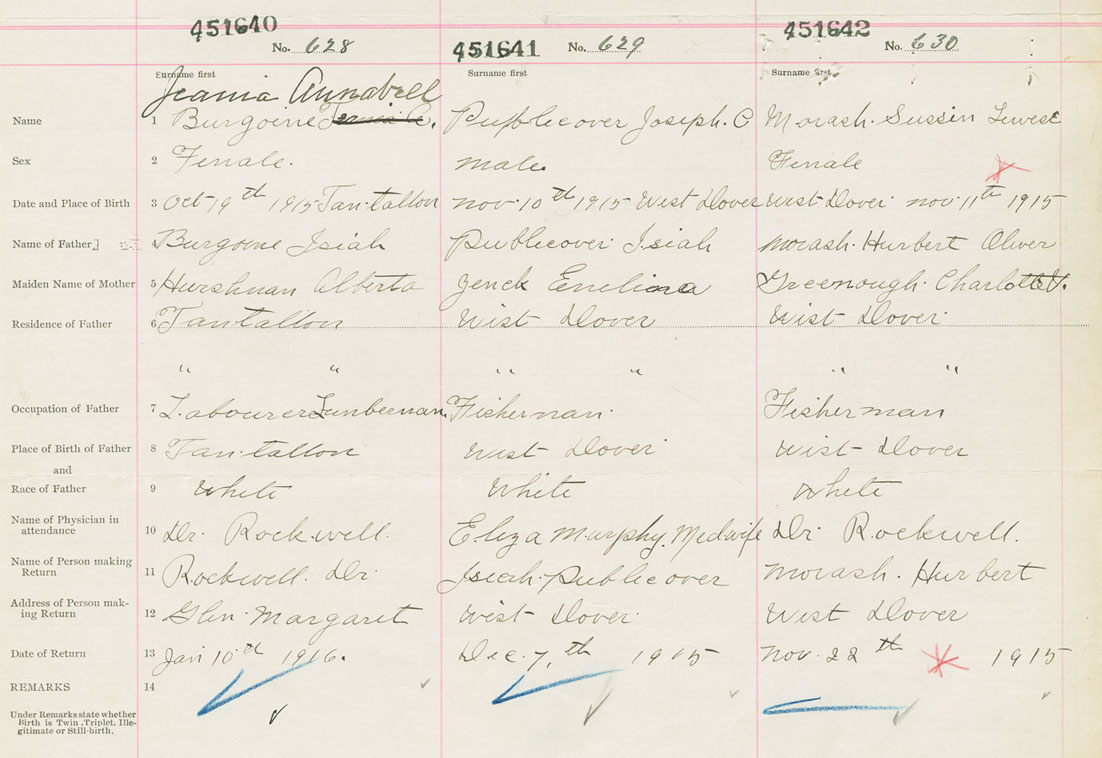 451640 451641 451642
No. 628 No. 629 No. 630
Surname first Surname first Surname first
Jeania Annabell
Name 1 Burgoine Publicover Joseph. C Morash. Sussin Lewese
Sex 2 Female. male. Female
Date and Place of Birth 3 Oct 19th 1915 Tantallon Nov. 10th 1915 West Dover West Dover Nov. 11th 1915
Name of Father 4 Burgoine Isiah Publicover Isiah Morash. Hurbert Oliver
Maiden Name of Mother 5 Hurshman Alberta Jenck Emelina Greenough. Charlotte V.
Residence of Father 6 Tantallon West Dover West Dover
" " " " " "
Occupation of Father 7 Labourer Lumberman. Fisherman. Fisherman
Place of Birth of Father 8 Tantallon West Dover West Dover
and
Race of Father 9 White White White
Name of Physician in
attendance 10 Dr. Rockwell. Eliza Murphy. Medwife Dr Rockwell.
Name of Person making
Return 11 Rockwell. Dr. Isiah. Publicover Morash. Hurbert
Address of Person mak-
ing Return 12 Glen. Margaret West Dover West Dover
Date of Return 13 Jan 10th 1916. Dec. 7,th 1915 Nov. 22th 1915
REMARKS 14
Under Remarks state whether
Birth is Twin, Triplet, Ille-
gitimate or Still-birth.